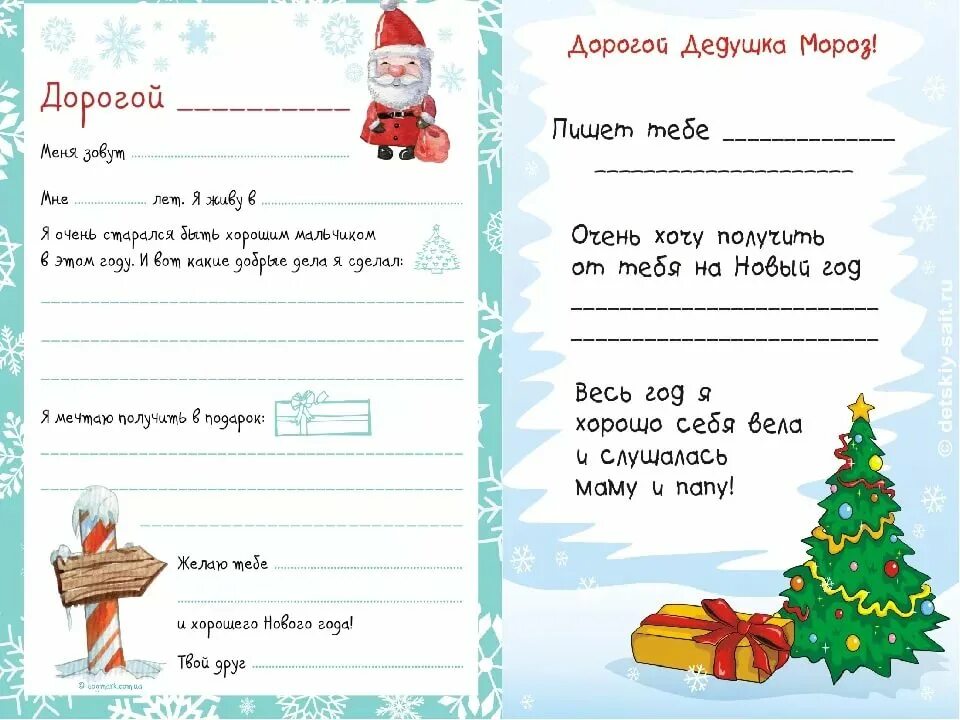 Дорогой __________
Меня зовут
Мне лет. Я живу в
Я очень старался быть хорошим мальчиком
в этом году. И вот какие добрые дела я сделал:
Я мечтаю получить в подарок:
Желаю тебе
и хорошего Нового года!
Твой друг
Дорогой Дедушка Мороз!
Пишет тебе ______________
Очень хочу получить
от тебя на Новый год
Весь год я
хорошо себя вела
и слушалась
маму и папу!
© detskiy-sait.ru